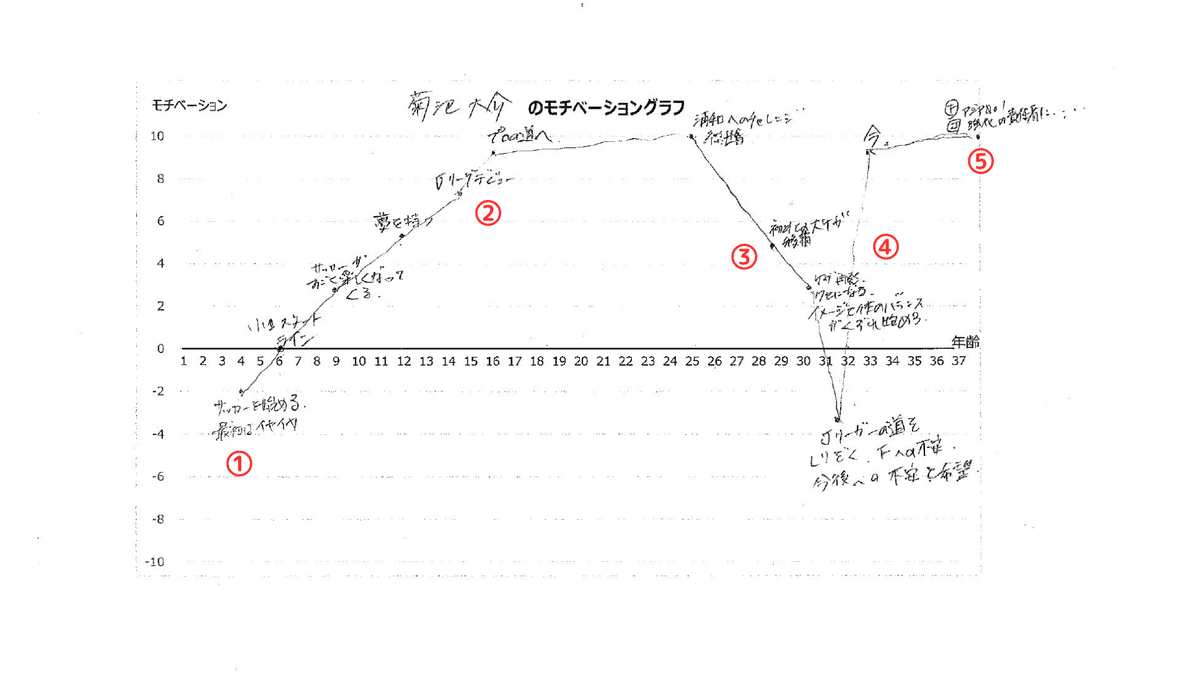 モチベーション
菊池 大介 のモチベーショングラフ
10
8
6
4
2
0
-2
-4
-6
-8
-10
1 2 3 4 5 6 7 8 9 10 11 12 13 14 15 16 17 18 19 20 21 22 23 24 25 26 27 28 29 30 31 32 33 34 35 36 37
年齢
サッカーを始める。
最初はイヤイヤ
①
小生スタート
ライン
サッカーが
楽しくなって
くる。
夢を持つ
Jリーグデビュー
②
プロの道へ
浦和へのチャレンジ
初めての大ケガ
③
クセになる。
イメージと体のバランス
がくずれ始める。
Jリーガーの道を
しりぞく。
今後への不安と希望
④
今。
アジアNo!
強化の責任者に・・・・
⑤